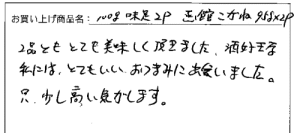 お買い上げ商品名：100g 味足2P 函館こがね 958×2P
2品ともとても美味しく頂きました、酒好きな
私には、とてもいいおつまみに出会いました。
只、少し高い気がします。